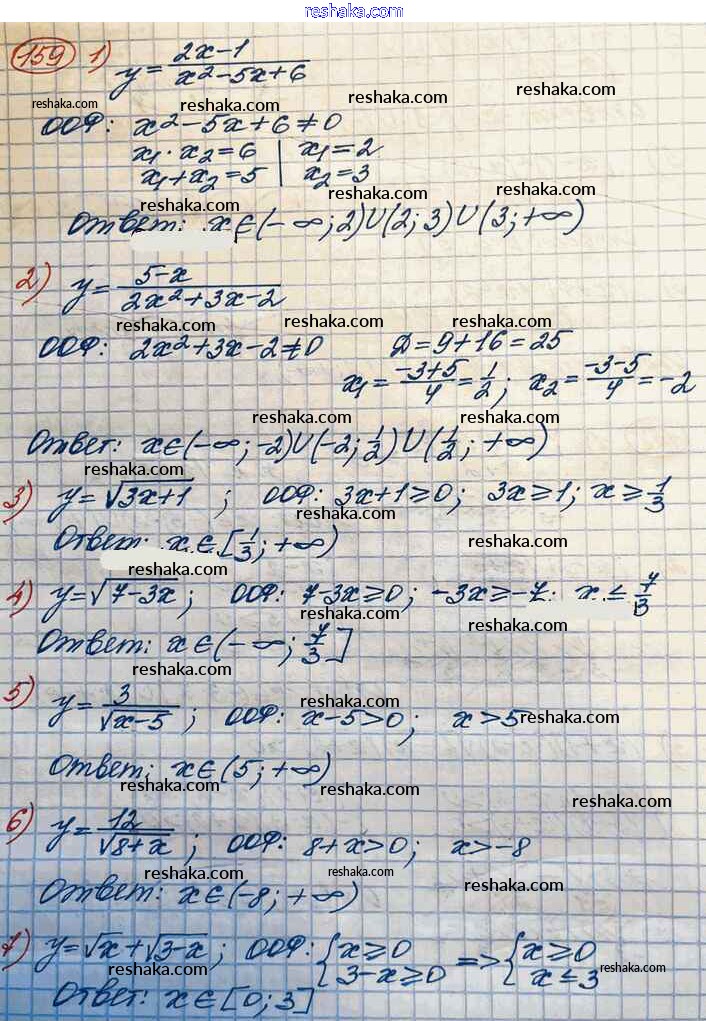 reshaka.com
159 1) y = (2x-1)/(x²-5x+6)
reshaka.com
reshaka.com reshaka.com
ООФ: x²-5x+6≠0
x₁·x₂=6 | x₁=2
x₁+x₂=5 | x₂=3
reshaka.com
reshaka.com
Ответ: x∈(-∞;2)∪(2;3)∪(3;+∞)
reshaka.com
reshaka.com
2) y = (5-x)/(2x²+3x-2)
reshaka.com reshaka.com
ООФ: 2x²+3x-2≠0 Д=9+16=25
reshaka.com
x₁=(-3+5)/4=1/2; x₂=(-3-5)/4=-2
reshaka.com reshaka.com
Ответ: x∈(-∞;-2)∪(-2;1/2)∪(1/2;+∞)
reshaka.com
3) y=√(3x+1) ; ООФ: 3x+1≥0; 3x≥1; x≥1/3
reshaka.com
Ответ: x∈[1/3;+∞)
reshaka.com
4) y=√(7-3x); ООФ: 7-3x≥0; -3x≥-7. x≤7/3
reshaka.com
Ответ: x∈(-∞;7/3]
reshaka.com
5) y=3/√(x-5); ООФ: x-5>0; x>5
reshaka.com reshaka.com
Ответ: x∈(5;+∞)
reshaka.com
reshaka.com
6) y=12/√(8+x); ООФ: 8+x>0; x>-8
reshaka.com
reshaka.com reshaka.com reshaka.com
Ответ: x∈(-8;+∞)
7) y=√x+√(3-x); ООФ: {x≥0 3-x≥0 => {x≥0 x≤3
reshaka.com reshaka.com reshaka.com
Ответ: x∈[0;3]